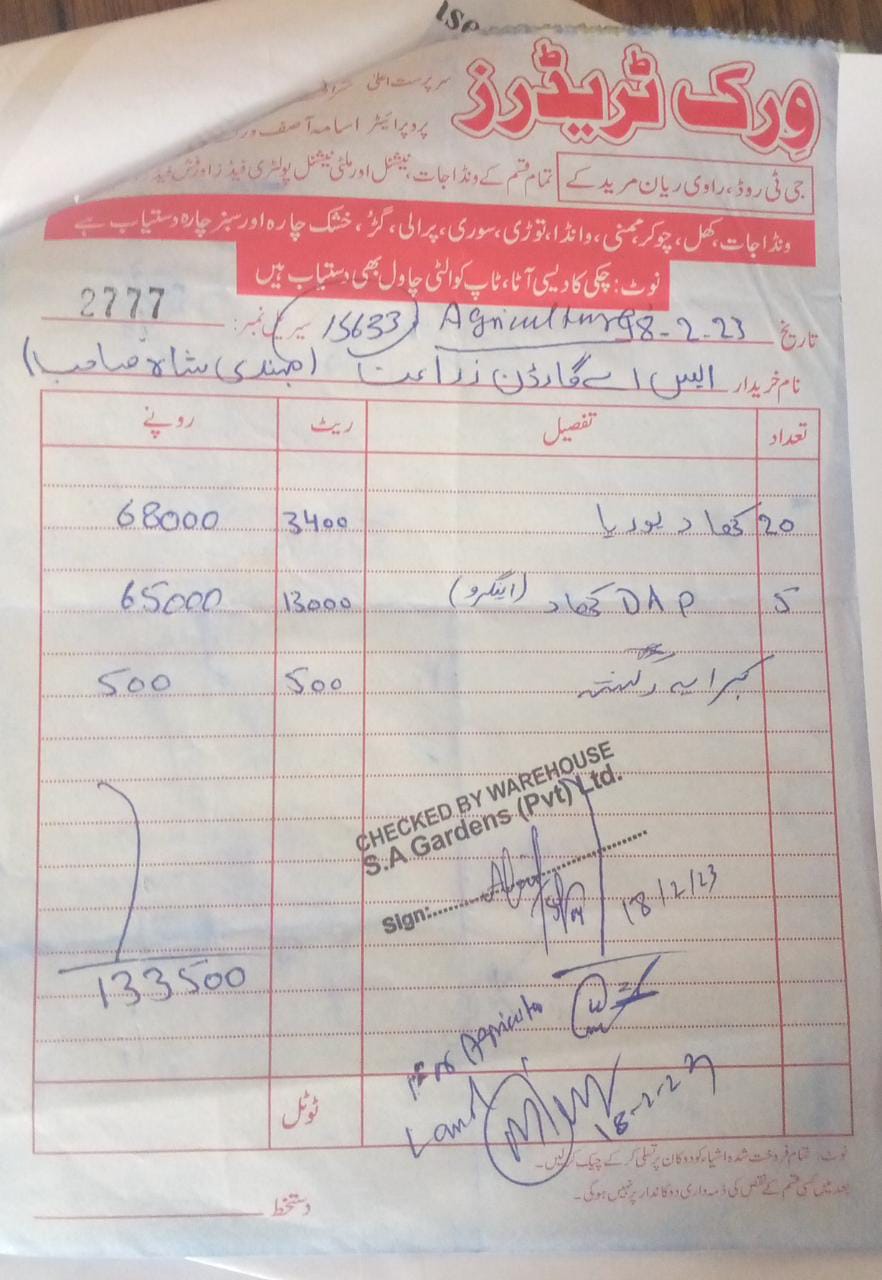 ورک ٹریڈرز
سرپرست اعلیٰ
پروپرائیٹر اسامہ آصف
جی ٹی روڈ، راوی ریان مرید کے
تمام قسم کے ونڈا جات، نیشنل اور ملٹی نیشنل پولٹری فیڈز اور فش فیڈ
ونڈا جات، کھل، چوکر، ممنی، وانڈا، توڑی، سوری، پرالی، گڑ، خشک چارہ اور سبز چارہ دستیاب ہے
نوٹ: چکی کا دیسی آٹا، ٹاپ کوالٹی چاول بھی دستیاب ہیں
تاریخ 18-2-23 Agriculture 15633 سیریل نمبر: 2777
نام خریدار ایس اے گارڈن زراعت (مہندی شاہ صاحب)
تعداد تفصیل ریٹ روپے
20 کھاد یوریا 3400 68000
5 DAP کھاد (اینگرو) 13000 65000
کرایہ رکشہ 500 500
CHECKED BY WAREHOUSE
S.A Gardens (Pvt) Ltd.
Sign:
18/2/23
133500
Land
18-2-23
ٹوٹل
نوٹ: تمام فروخت شدہ اشیاء کو دوکان پر تسلی کر کے چیک کر لیں۔
بعد میں کسی قسم کے نقص کی ذمہ داری دوکاندار پر نہیں ہوگی۔
دستخط